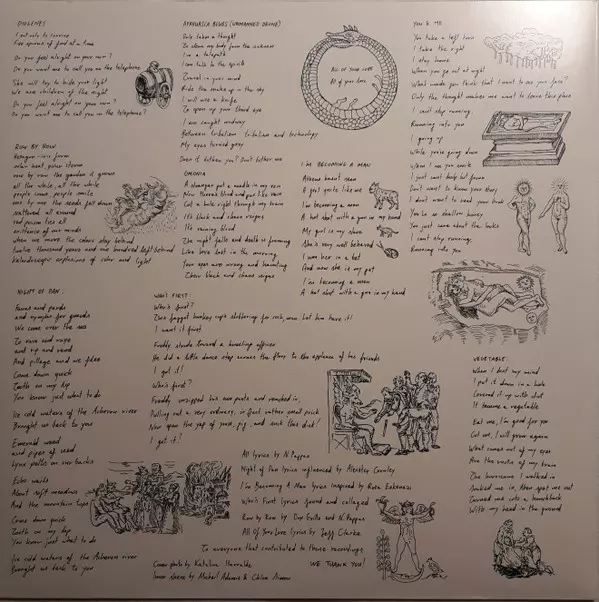 DIOGENES
Do you feel alright on your own?
Do you want me to call you on the telephone
She will try to hide your light
We are children of the night
Do you feel alright on your own?
Do you want me to call you on the telephone?
ROW BY ROW
row by row the garden is grown
all the while, all the while
people come people smile
one by one the seeds fall down
scattered all around
existence of our minds
when we move the colours stay behind
twelve thousand years and one hundred left behind
kaleidoscopic explosions of color and light
NIGHT OF PAN:
Fauns and pards
and nymphs for guards
We come over the sea
To rave and rape
and rip and rend
And pillage and we flee
Come down quick
Teeth on my lip
You know just what to do
Ice cold waters of the Acheron river
Brought us back to you
Emerald weed
and pipes of reed
Lynx pelts on our backs
About soft meadows
And the mountain tops
Come down quick
Teeth on my lip
You know just what to do
Ice cold waters of the Acheron river
Brought us back to you
AYAHUASCA BLUES (UNMANNED DRONE)
Only takes a thought
To clean my body from the sickness
I'm a telepath
I can talk to the spirits
Covered in your mind
Ride the snake up in the sky
I will use a knife
To open up your third eye
I am caught midway
Between tribalism tribalism and technology
My eyes turned grey
Does it bother you? Don't bother me
OMONIA
A stranger put a needle in my vein
Cut a hole right through my brain
It's black and chaos reigns
It's raining blood
The night falls and death is foaming
Like love lost in the morning
Your eyes are wrong and haunting
It's black and chaos reigns
WHO'S FIRST:
Who's first?
I want it first
Freddy stands toward a knowing officer
He did a little dance step across the floor to the applause of his friends
I got it!
Who's first?
Freddy unzipped his own pants and reached in,
Pulling out a very ordinary, in fact rather small prick
Now open the yap of yours, pig, and suck this dick!
I got it!
ALL OF YOUR LOVE
All of your love
I'M BECOMING A MAN
Athens beast seen
A girl quite like me
I'm becoming a man
A hot shot with a gun in my hand
My girl is my slave
She's very well behaved
I won her in a bet
And now she is my pet
I'm becoming a man
A hot shot with a gun in my hand
YOU & ME
You take a left turn
I take the right
I stay home
When you go out at night
What made you think that I want to see your face?
Only the thought makes me want to leave this place
I can't stop running,
Running into you
I going up
While you're going down
when I see you smile
I just can't help but frown
Don't want to know your story
I don't want to read your book
You're so shallow honey
You just care about the looks
I can't stop running,
Running into you
VEGETABLE:
When I lost my mind
I put it down in a hole
Covered it up with dirt
It became a vegetable
Eat me, I'm good for you
Cut me, I will grow again
What comes out of my eyes
Are the roots of my brain
The hurricane I walked in
Sucked me in, then spat me out
Turned me into a hunchback
With my head in the ground
All lyrics by N. Pappas
Night of Pan lyrics influenced by Aleister Crowley
I'm Becoming A Man lyrics inspired by Roza Eskenazi
Who's First lyrics found and collaged
Row by Row by N. Pappas
All of Your Love lyrics by Jeff Clarke
To everyone that contributed to these recordings
WE THANK YOU!
Cover photo by Katalina
Inner sleeve by Michail Adamis & Chloe